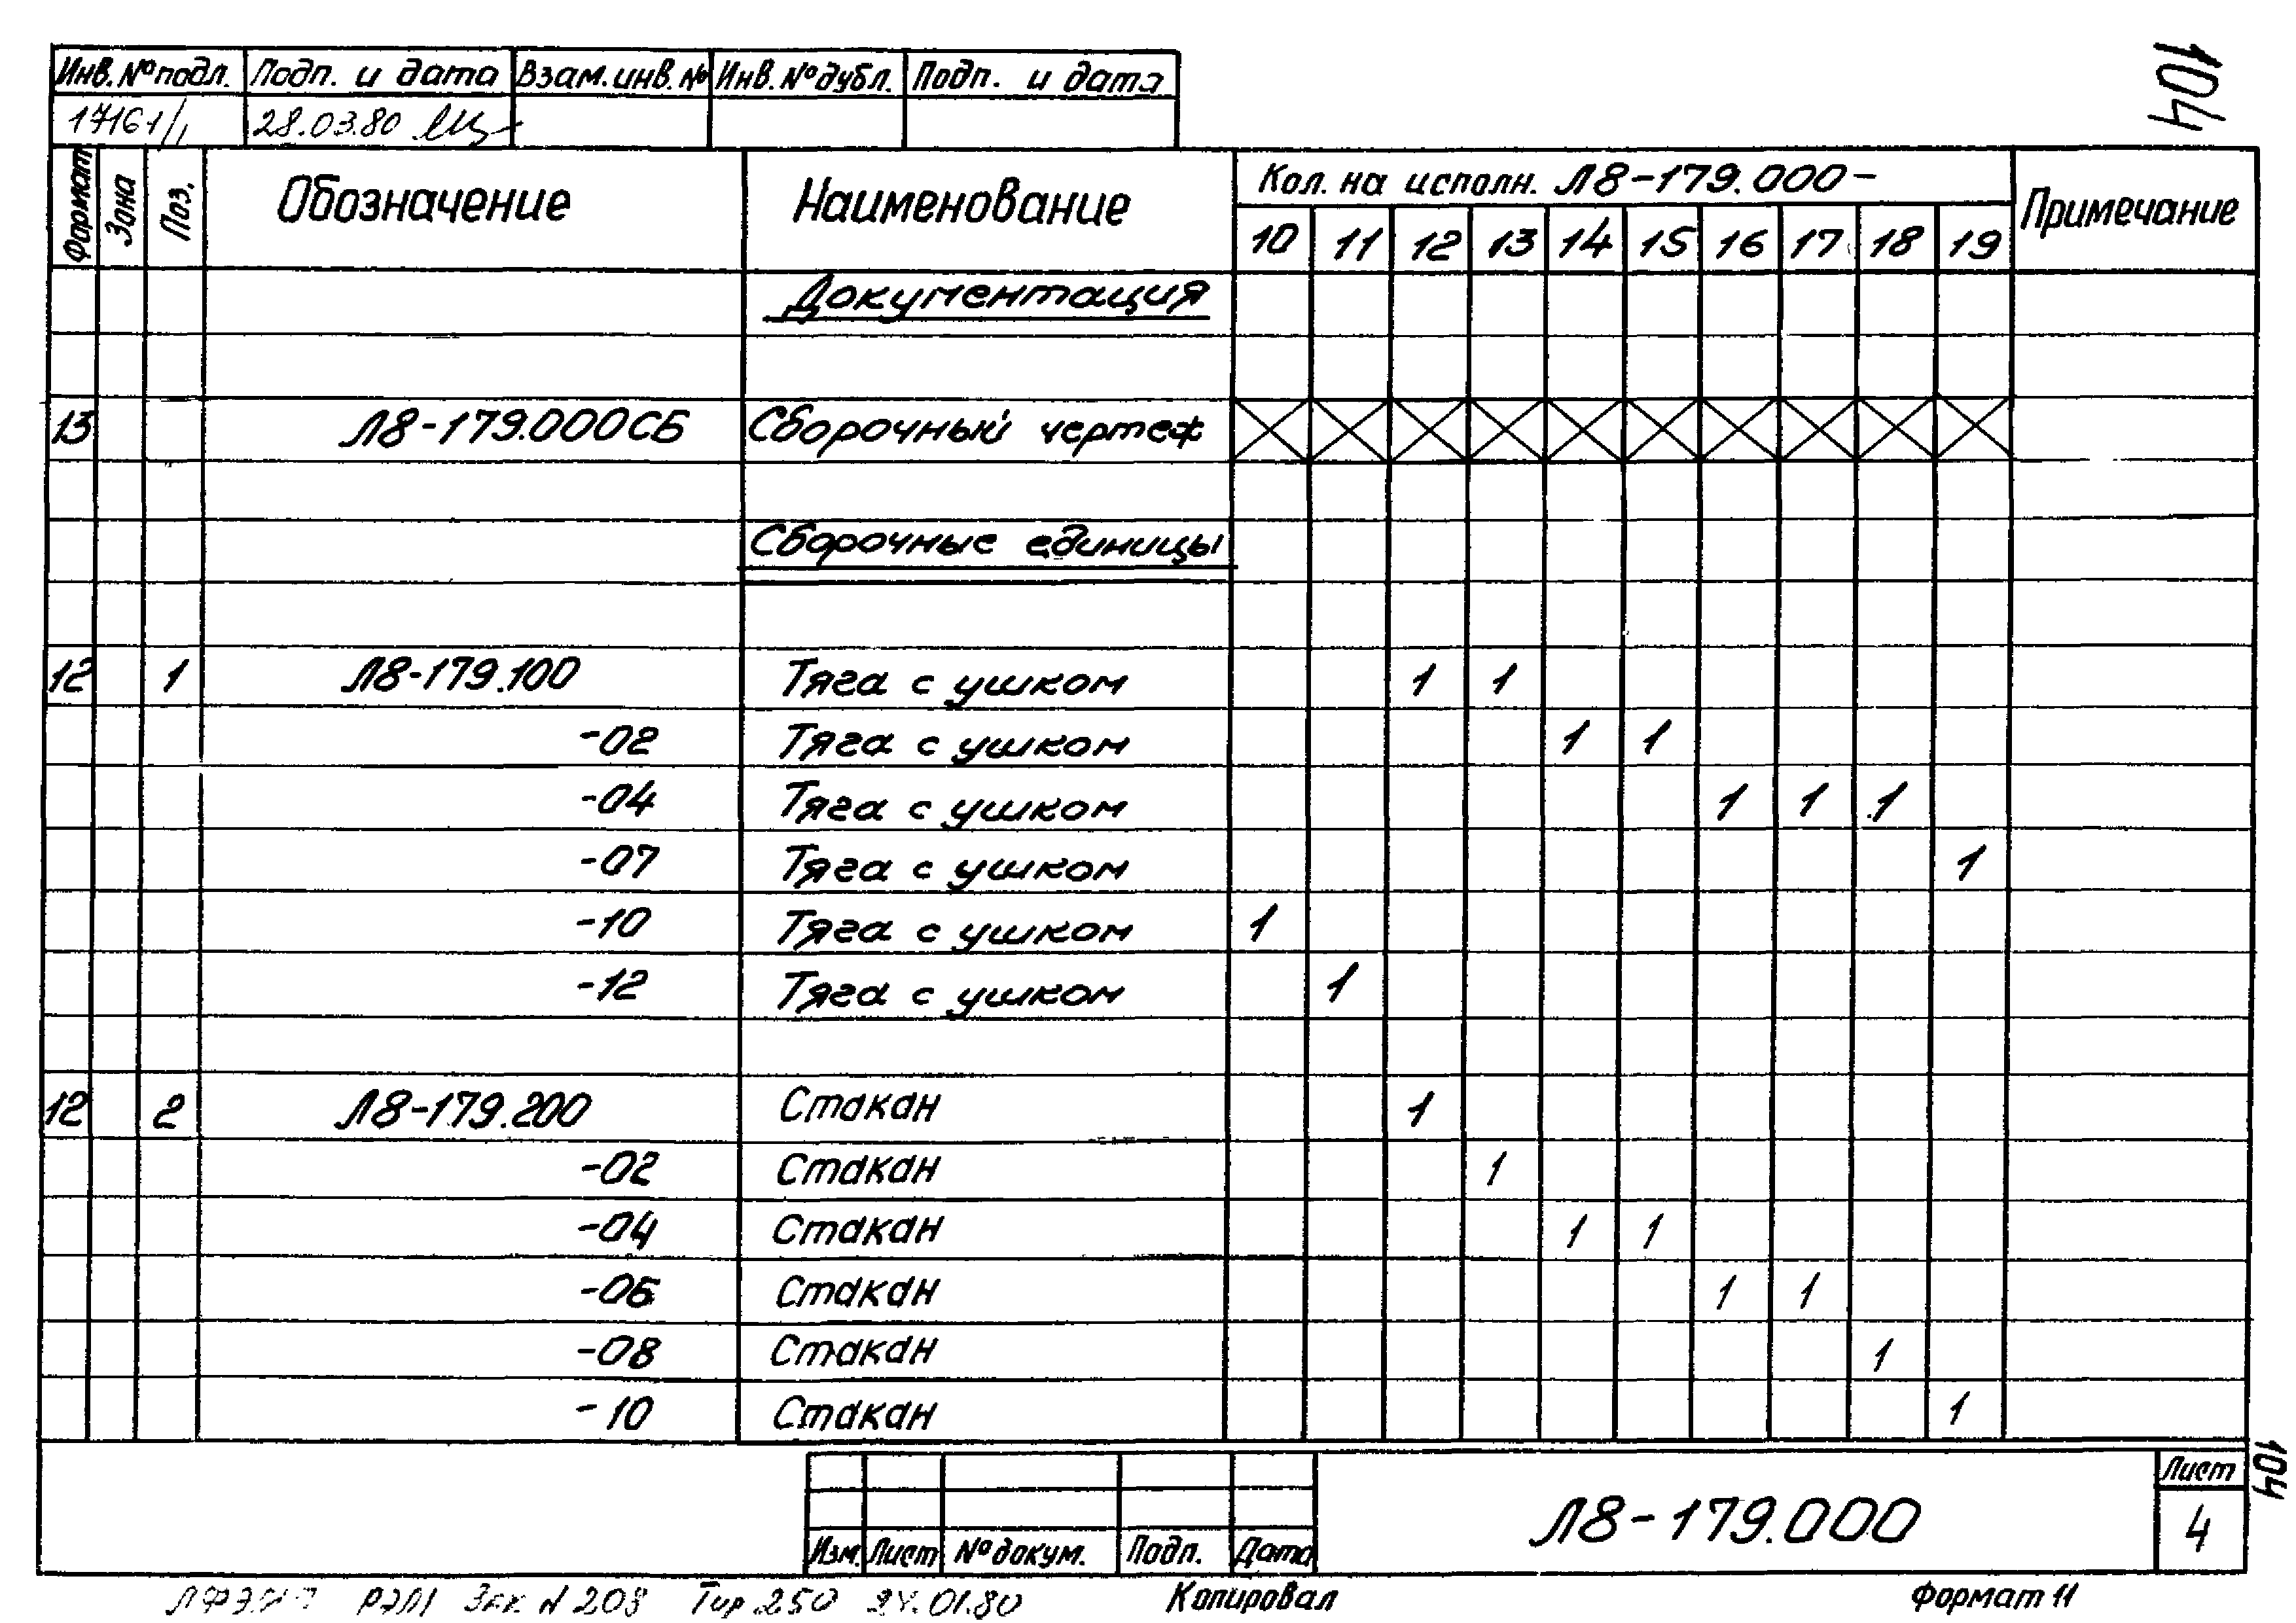 104
Инв. № подл. Подп. и дата Взам. инв. № Инв. № дубл. Подп. и дата
17161/1 28.03.80
Формат Зона Поз. Обозначение Наименование Кол. на исполн. Л8-179.000- Примечание
10 11 12 13 14 15 16 17 18 19
Документация
13 Л8-179.000СБ Сборочный чертеж
Сборочные единицы
12 1 Л8-179.100 Тяга с ушком 1 1
-02 Тяга с ушком 1 1
-04 Тяга с ушком 1 1 1
-07 Тяга с ушком 1
-10 Тяга с ушком 1
-12 Тяга с ушком 1
12 2 Л8-179.200 Стакан 1
-02 Стакан 1
-04 Стакан 1 1
-06 Стакан 1 1
-08 Стакан 1
-10 Стакан 1
Изм. Лист № докум. Подп. Дата
Л8-179.000
Лист
4
104
Зак N 208 Тир 250 24.01.80 Копировал Формат 11